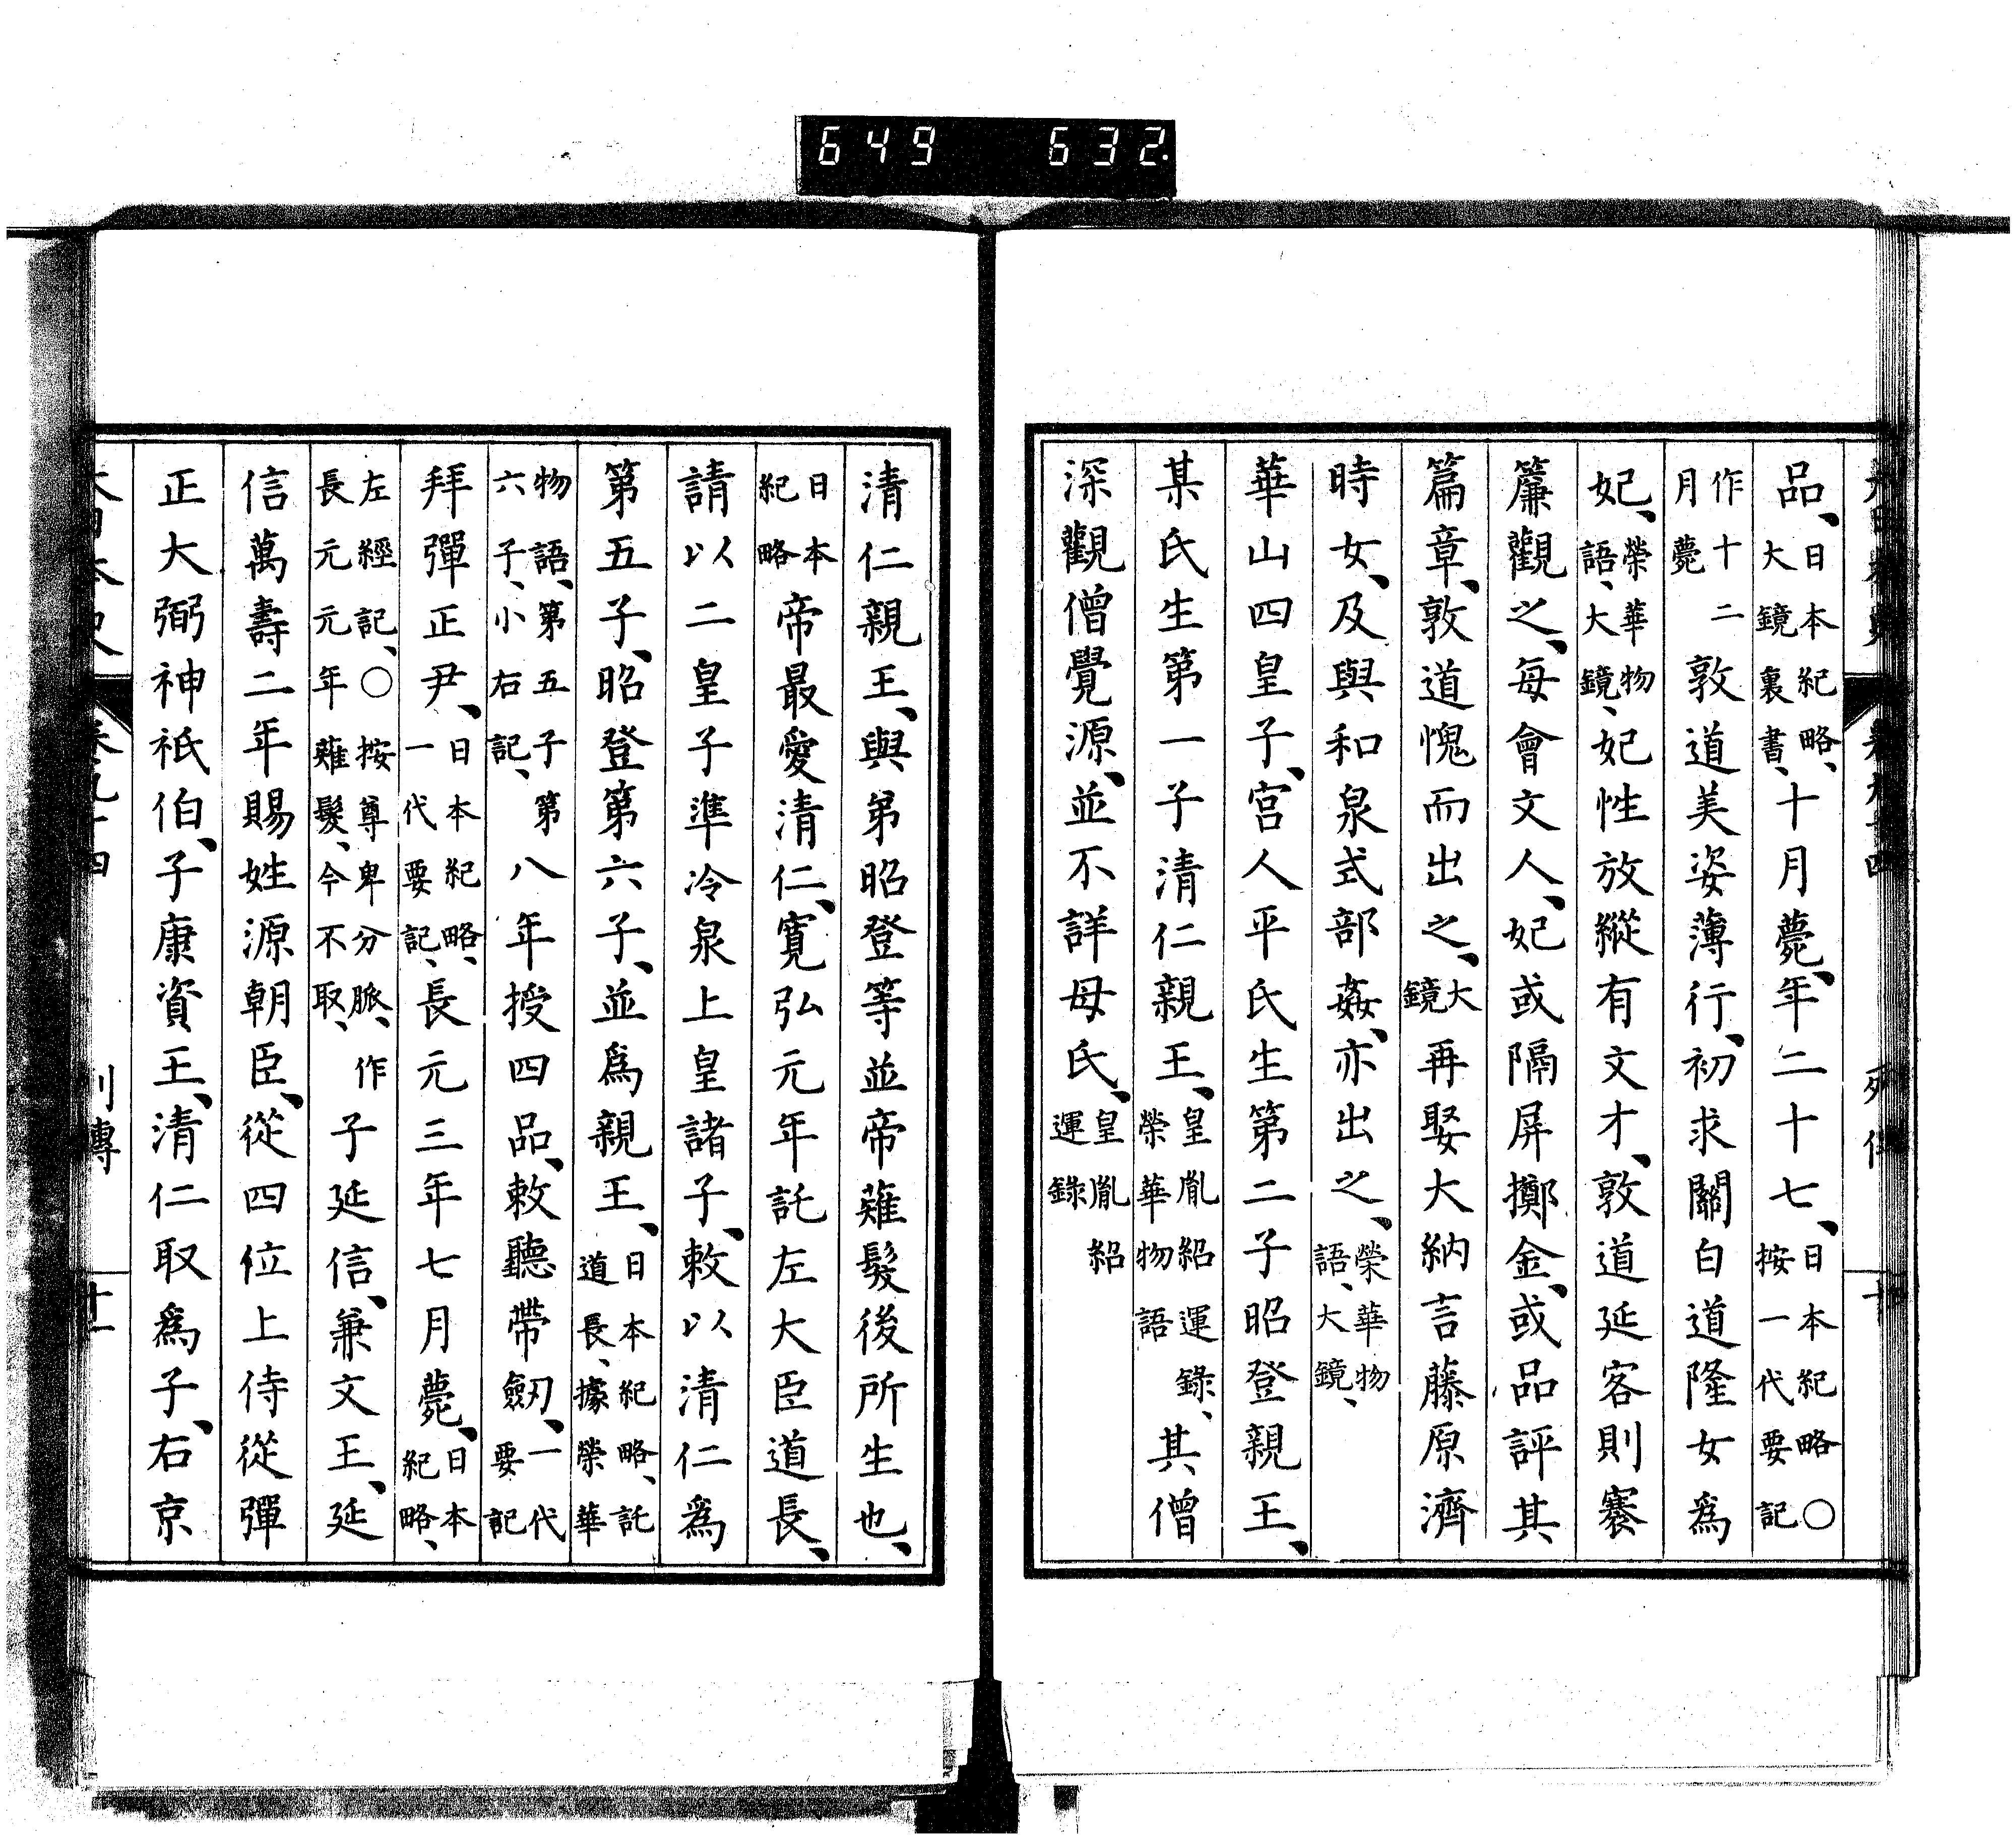 649 632
品、日本紀略、大鏡裏書、十月薨、年二十七、日本紀略○按一代要記
作十二月薨敦道美姿薄行、初求關白道隆女爲
妃、榮華物語、大鏡、妃性放縱有文才、敦道延客則褰
簾觀之、每會文人、妃或隔屏擲金、或品評其
篇章、敦道愧而出之、大鏡再娶大納言藤原濟
時女、及與和泉式部姦、亦出之、榮華物語、大鏡、
華山四皇子、宮人平氏生第二子昭登親王、
某氏生第一子清仁親王、皇胤紹運錄、榮華物語其僧
深觀僧覺源、並不詳母氏、皇胤紹運錄
清仁親王、與弟昭登等並帝薙髮後所生也、
日本紀略帝最愛清仁、寬弘元年託左大臣道長、
請以二皇子準冷泉上皇諸子、敕以清仁爲
第五子、昭登第六子、並爲親王、日本紀略、託道長、據榮華
物語、第五子第六子、小右記、八年授四品、敕聽帶劒、一代要記
拜彈正尹、日本紀略、一代要記、長元三年七月薨、日本紀略、
左經記、○按尊卑分脈、作長元元年薙髮、今不取、子延信、兼文王、延
信萬壽二年賜姓源朝臣、從四位上侍從彈
正大弼神祇伯、子康資王、清仁取爲子、右京
列傳
十一